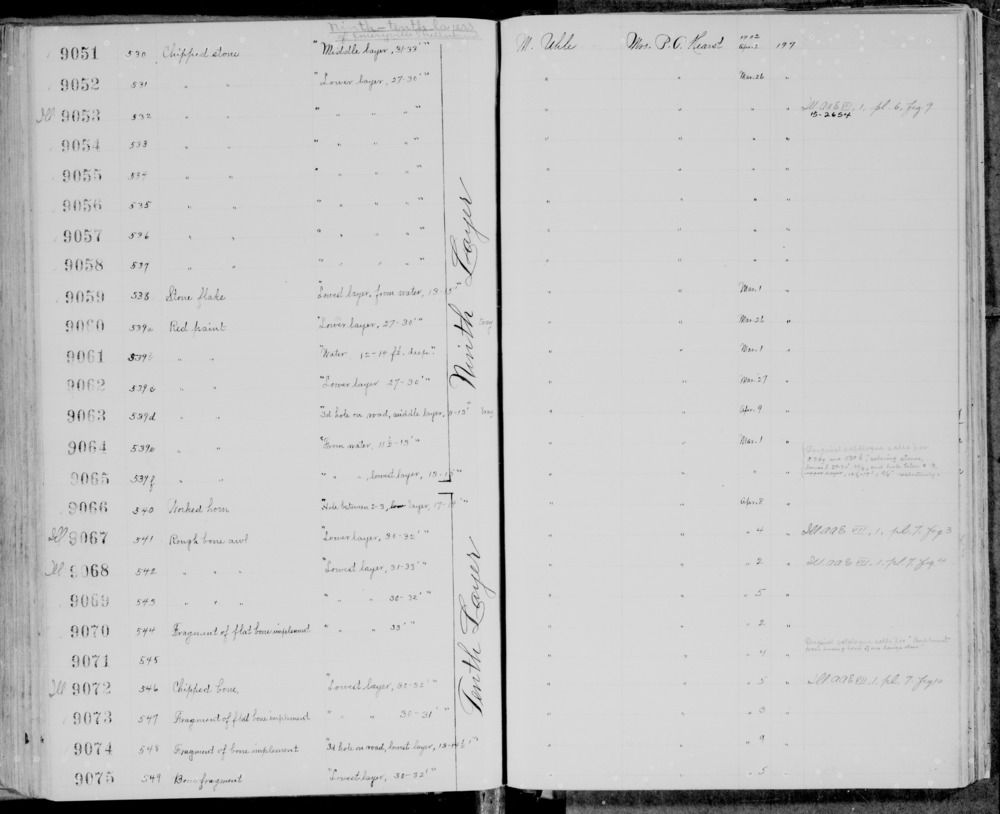 Ninth-tenth layers
of Emeryville
9051 530 Chipped stone "Middle layer, 31-33'" M. Uhle Mrs. P. A. Hearst 1902 Apr. 2 197
9052 531 " " "Lower layer, 27-30'" " " Mar. 26 "
Ill 9053 532 " " " " " " " " " " Ill. AAE VII, 1. pl. 6, fig 9
15-2654
9054 533 " " " " " " " " " "
9055 534 " " " " " " " " " "
9056 535 " " " " " " " " " "
9057 536 " " " " " " " " " "
9058 537 " " " " " " " " " "
9059 538 Stone flake "Lowest layer, from water, 13-15'" " " Mar. 1 "
9060 539a Red paint "Lower layer, 27-30'" " " Mar. 26 "
9061 539b " " "Water 12-14 ft. deep" " " Mar. 1 "
9062 539c " " "Lower layer 27-30'" " " Mar. 27 "
9063 539d " " "3d hole on road, middle layer, 11-13'" " " Apr. 9 "
9064 539e " " "From water, 11½-13'" " " Mar. 1 "
9065 539f " " " " , lowest layer, 13-15'" " " " "
Ninth Layer
9066 540 Worked horn "Hole between 2-3, layer, 17-19'" " " Apr. 8 "
Ill 9067 541 Rough bone awl "Lower layer, 30-32'" " " " 4 " Ill. AAE VII, 1. pl. 7, fig 3
Ill 9068 542 " " " "Lowest layer, 31-33'" " " " 2 " Ill. AAE VII. 1. pl. 7, fig 4
9069 543 " " " " " 30-32'" " " " 5 "
9070 544 Fragment of flat bone implement " " 33'" " " " 2 "
9071 545 " " " 4 "
Ill 9072 546 Chipped bone, "Lowest layer, 30-32'" " " " 5 " Ill AAE VII. 1. pl. 7, fig 10
9073 547 Fragment of flat bone implement " " 30-31'" " " " 3 "
9074 548 Fragment of bone implement "3d hole on road, lowest layer, 13-14½'" " " " 9 "
9075 549 Bone fragment "Lowest layer, 30-32'" " " " 5 "
Tenth Layer